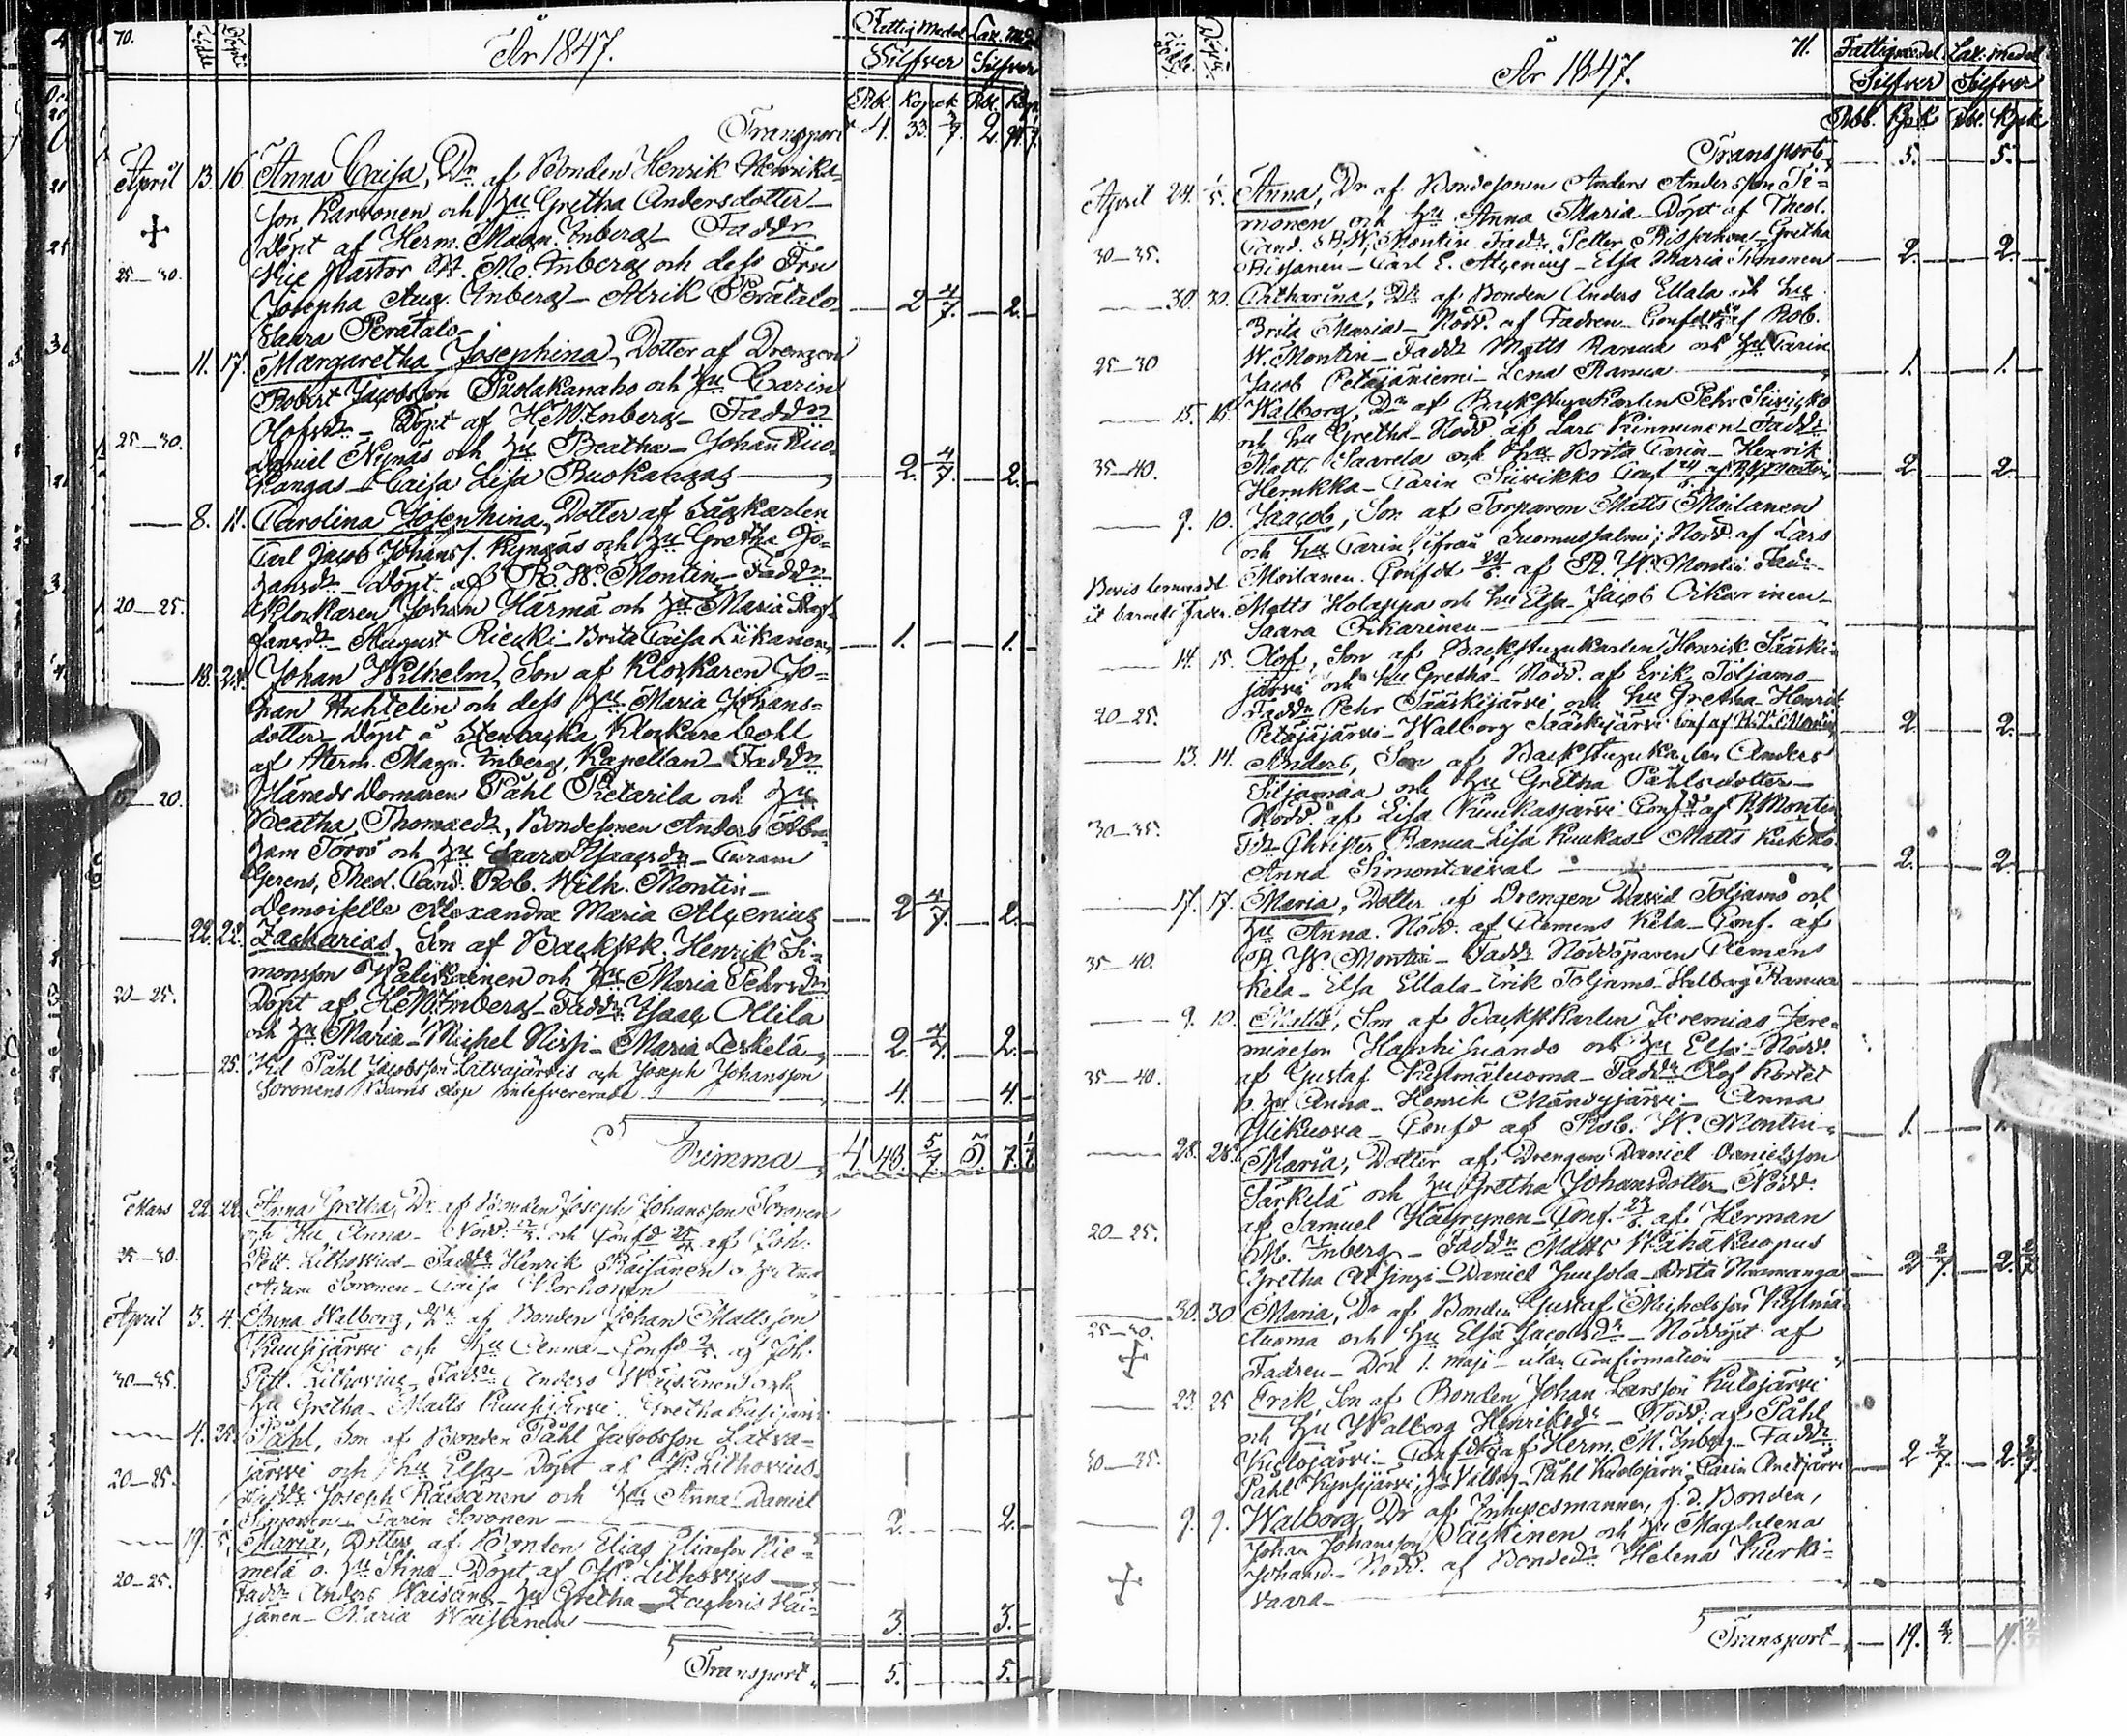 70.
Född
Döpt
År 1847.
Fattig Medel Laz. Med.
Silfver Silfver
Rbl. Kopek Rbl. Kop.
Transport 4. 33. 3/7. 2.
April 13. 16. Anna Caisa, Dr. af Bonden Henrik Henriks-
son Karvonen och Hu Gretha Andersdotter
Döpt af Herm. Magn. Inberg Faddr
25–30. Vice Pastor H. M. Inberg och dess Fru
Josepha Aug. Inberg – Alrik Perätalo 2 4/7. 2.
Saara Perätalo
11. 17. Margaretha Josephina, Dotter af Drengen
Robert Jacobsson Puolakanaho och Hu Carin
Olofsdr – Döpt af H M Inberg – Faddr
25–30. Daniel Nynäs och Hu Beatha – Johan Ruo-
kangas – Caisa Lisa Ruokangas 2. 4/7. 2.
8. 11. Carolina Josephina, Dotter af
Carl Jacob Johanss. Kyngäs och Hu Gretha Jo-
hansdr – Döpt af R. W. Montin – Faddr
20–25. Klockaren Johan Härmä och Hu Maria
Jansdr – August Riecki – Brita Caisa Liikanen 1. 1.
18. 24. Johan Wilhelm, Son af Klockaren Jo-
han Anhtelin och dess Hu Maria Johans-
dotter – Döpt å Stenbacka Klockarebohl
af Herm. Magn. Inberg, Kapellan – Faddr
20. Härads Domaren Påhl Pietarila och Hu
Beatha Thomaedr, Bondesonen Anders Abra-
ham Törrö och Hu Saara Isaacsdr – Curam
Gerens, Theol. Cand. Rob. Wilh. Montin –
Demoiselle Alexandra Maria Alcenius 2 4/7. 2.
22. 22. Zacharias, Son af Backstk. Henrik Si-
monsson Waliskainen och Hu Maria Pehrsdr
20–25. Döpt af H M Inberg – Faddr Isaac Ollila
och Hu Maria – Michel Nissi – Maria Leskelä 2. 4/7. 2.
25. Vid Påhl Jacobsson Latvajärvis och Joseph Johansson
Soronens Barns dop 4. 4.
Summa 4 48. 5/7 5. 7. 1/7
Mars 22. 22. Anna Gretha, Dr. af Bonden Joseph Johansson Soronen
och Hu Anna – Nödd. och Confd af Joh.
25–30. Pett. Lithovius – Faddr Henrik Räisänen o Hu
Adam Soronen – Caisa Korhonen
April 3. 4. Anna Walborg, Dr. af Bonden Johan Mattsson
Kuusijärvi och Hu Anna – Confd af Joh.
30–35. Pett. Lithovius – Faddr Anders Wäisänen och
Hu Gretha – Matts Kuusijärvi – Gretha Kusijärvi
4. 25. Påhl, Son af Bonden Påhl Jacobsson Latva-
järvi och Hu Elsa – Döpt af P. Lithovius
20–25. Faddr Joseph Räisänen och Hu Anna – Daniel
Simonen – Caren Soronen 2. 2.
19. 5. Maria, Dotter af Bonden Elias Eliasson Nie-
melä o. Hu Stina – Döpt af P. Lithovius
20–25. Faddr Anders Waisäne – Hu Gretha – Zachris Väi-
sänen – Maria Waisänen 3. 3.
Transport 5. 5.
71.
Född
Döpt
År 1847.
Fattigmedel Laz. medel
Silfver Silfver
Rbl. Kpk Rbl. Kpk
Transport 5. 5.
April 24. 1/5. Anna, Dr af Bondesonen Anders Andersson Si-
monen och Hu Anna Maria – Döpt af Theol.
Cand. R. W. Montin Fadr Petter Rissanen – Gretha
30–35. Rissanen – Carl E. Alcenius – Elsa Maria Simonen 2. 2.
30. 30. Catharina, Dr af Bonden Anders Ellala och Hu
Brita Maria – Nödd. af Fadren – Confd af Rob.
25–30 W. Montin – Faddr Matts Ranua och Hu Carin
Jacob Petäjäniemi – Lena Ranua 1. 1.
15. 15. Walborg, Dr af Backstugukarlen Pehr Siivikko
och Hu Gretha – Nödd af Lars Kinnunen – Faddr
35–40. Matts Saarela och Hu Brita Carin – Henrik
Hernkka – Carin Siivikko Conf af R W Montin 2 2.
9. 10. Jaacob, Son af Torparen Matts Moilanen
och Hu Carin, ifrån Suomussalmi; Nödd. af Lars
Bevis lemnadt Moilanen. Confdt 24/6. af R. W. Montin Fad.
åt barnets Fader. Matts Holappa och Hu Elsa – Jacob Oikarinen –
Saara Oikarinen
14. 15. Olof, Son af Backstugukarlen Henrik Sääski-
järvi och Hu Gretha – Nödd. af Erik Toljamo –
20–25. Faddr Pehr Sääskijärvi och Hu Gretha – Henrik
Petäjäjärvi – Walborg Sääskijärvi Conf af R. W. Montin 2. 2.
13. 14. Anders, Son af Backstugukarlen Anders
Siljamaa och Hu Gretha Påhlsdotter –
30–35. Nödd. af Lisa Kuukasjärvi Confd af R Montin
Fdr Christer Ranua – Lisa Kuukas – Matts Kukko
Anna Simontaival 2. 2.
17. 17. Maria, Dotter af Drengen David Toljamo och
Hu Anna. Nödd. af Clemens Kela – Conf. af
35–40. R W. Montin – Faddr Nöddöparen Clemens
Kela – Elsa Ellala – Erik Toljamo – Walborg Ranua
9. 10. Matts, Son af Backstkarlen Jeremias Jere-
miasson Hanhisuando och Hu Elsa – Nödd.
35–40. af Gustaf Kuslmäluoma – Faddr Olof Kortet
o. Hu Anna – Henrik Mändyjärvi – Anna
Ylikuova – Confd af Rob. W. Montin 1.
28. 28. Maria, Dotter af Drengen Daniel Danielsson
Särkelä och Hu Gretha Johansdotter Nödd.
20–25. af Samuel Häyrynen – Conf. af Herman
M. Inberg – Faddr Matts Wähäkuopus
Gretha – Daniel Juusola – Brita 2 2/7. 2. 2/7
30. 30. Maria, Dr af Bonden Gustaf Michelsson
25–30. luoma och Hu Elsa Jacobsdr – Nöddöpt af
Fadren – Död 1. maji – utan Confirmation
23. 25 Erik, Son af Bonden Johan Larsson Kulojärvi
och Hu Walborg Henriksdr – Nödd. af Påhl
30–35. Kuolojärvi – Confdt af Herm. M. Inberg – Faddr
Påhl Kynsijärvi, Hu Valbor – Påhl Kuolojärvi – Carin 2 2/7. 2. 2/7
9. 9. Walborg, Dr af Inhysesmannen, f. d. Bonden,
Johan Johansson Säkkinen och Hu Magdalena
Johansd – Nödd. af Bondedr Helena Kurki-
vaara –
Transport 19. 4/7. 19. 4/7